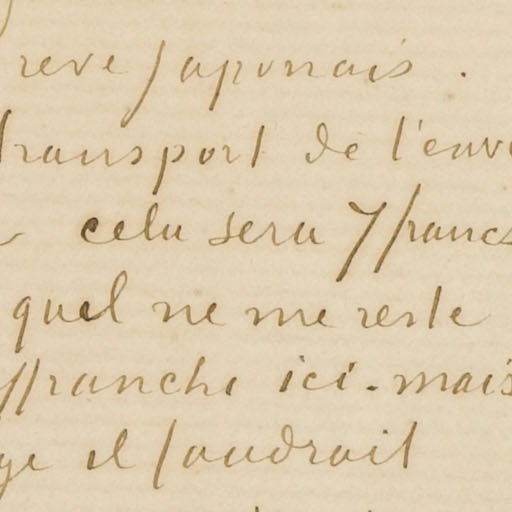 reve japonais.
transport de l'env
cela sera 7 francs
quel ne me reste
ffranchi ici. mais
ge il faudrait